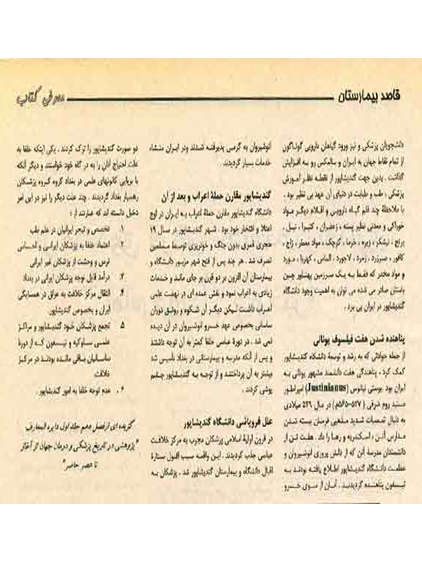 قاصد بیمارستان
معرفی کتاب
دانشجویان پزشکی و نیز ورود گیاهان دارویی گوناگون
از تمام نقاط جهان به ایران و سالمکس رو سه افزایش
گذاشت . بدین جهت گندیشاپور از نقطه نظر آموزش
پزشکی ، طب و طبابت در دنیای آن عهد بی نظیر بود .
با ملاحظه چند قلم گیاه دارویی و اقلام دیگر مواد
خوراکی و معدنی نظیر پسته ، زعفران ، کتیرا ، نیل ،
برنج ، نیشکر ، زیره ، خرما ، گوگرد ، مواد معطر ، زاج ،
کافور ، سبزرزد ، زمرد ، لاجورد ، الماس ، کهربا ، مروارید
و مواد مخدر که فقط به یک سرزمین پهناور چون
باستان صادر می شده می توان به اهمیت وجود دانشگاه
گندیشاپور در ایران پی برد .
پناهنده شدن هفت فیلسوف یونانی
از جمله حوادثی که به رشد و توسعهٔ دانشگاه گندیشاپور
کمک کرد ، پناهندگی هفت دانشمند مشهور یونانی به
ایران بود یوستی نیانوس (Justinianus) امپراطور
مستبد روم شرقی (۵۲۷-۵۶۵م) در سال ۵۲۹ میلادی
به دنبال تعصبات شدید مذهبی فرمان بسته شدن
مدارس آتن ، اسکندریه و رها را داد . هفت تن از
دانشمندان مدرسهٔ آتن که از دانش پروری انوشیروان و
عظمت دانشگاه گندیشاپور اطلاع یافته بودند به
تیسفون پناهنده گردیدند . آنان از سوی خسرو
انوشیروان به گرمی پذیرفته شدند ودر ایران منشاء
خدمات بسیار گردیدند .
گندیشاپور مقارن حملهٔ اعراب و بعد از آن
دانشگاه گندیشاپور مقارن حملهٔ اعراب به ایران در اوج
اعتلا و افتخار خود بود . شهر گندیشاپور در سال ۱۹
هجری قمری بدون جنگ و خونریزی توسط مسلمین
تصرف شد . هر چند پس از فتح شهر مزبور دانشگاه و
بیمارستان آن افزون بر دو قرن بر جای ماند و خدمات
زیادی به اعراب نمود و نقش عمده ای در نهضت علمی
اعراب داشت لیکن دیگر آن شکوه و رونق دوران
ساسانی بخصوص عهد خسرو انوشیروان در آن دیده
نمی شد . در دورهٔ عباسی خلفا کمتر به آن توجه داشتند
و پس از آنکه مدرسه و بیمارستانی در بغداد تأسیس شد
بیشتر به آن پرداختند و از توجه به گندیشاپور چشم
پوشی کردند .
علل فروپاشی دانشگاه گندیشاپور
در قرون اولیهٔ اسلامی پزشکان مجرب به مرکز خلافت
عباسی جذب گردیدند . این واقعه سبب افول ستارهٔ
اقبال دانشگاه و بیمارستان گندیشاپور شد . پزشکان به
دو صورت گندیشاپور را ترک کردند . یکی اینکه خلفا به
علت احتیاج آنان را به در گاه خود خواستند و دیگر آنکه
با برپایی کانونهای علمی در بغداد گروه گروه پزشکان
رهسپار بغداد گردیدند . چند علت دیگر را نیز در این امر
دخیل دانسته اند که عبارتند از :
۱. تخصص و تبحر ایرانیان در علم طب
۲. اعتماد خلفا به پزشکان ایرانی و احساس
ترس و وحشت از پزشکان غیر ایرانی
۳. درآمد قابل توجه پزشکان ایرانی در بغداد
۴. انتقال مرکز خلافت به عراق در همسایگی
ایران و بخصوص گندیشاپور
۵. تجمع پزشکان خود گندیشاپور و مراکز
علمی سلوکیه و تیسفون که از دورهٔ
ساسانیان باقی مانده بودند در مرکز
خلافت
۶. عدم توجه خلفا به امور گندیشاپور .
گزیده ای از فصل دهم جلد اول دایره المعارف
" پژوهشی در تاریخ پزشکی و درمان جهان از آغاز
تا عصر حاضر "